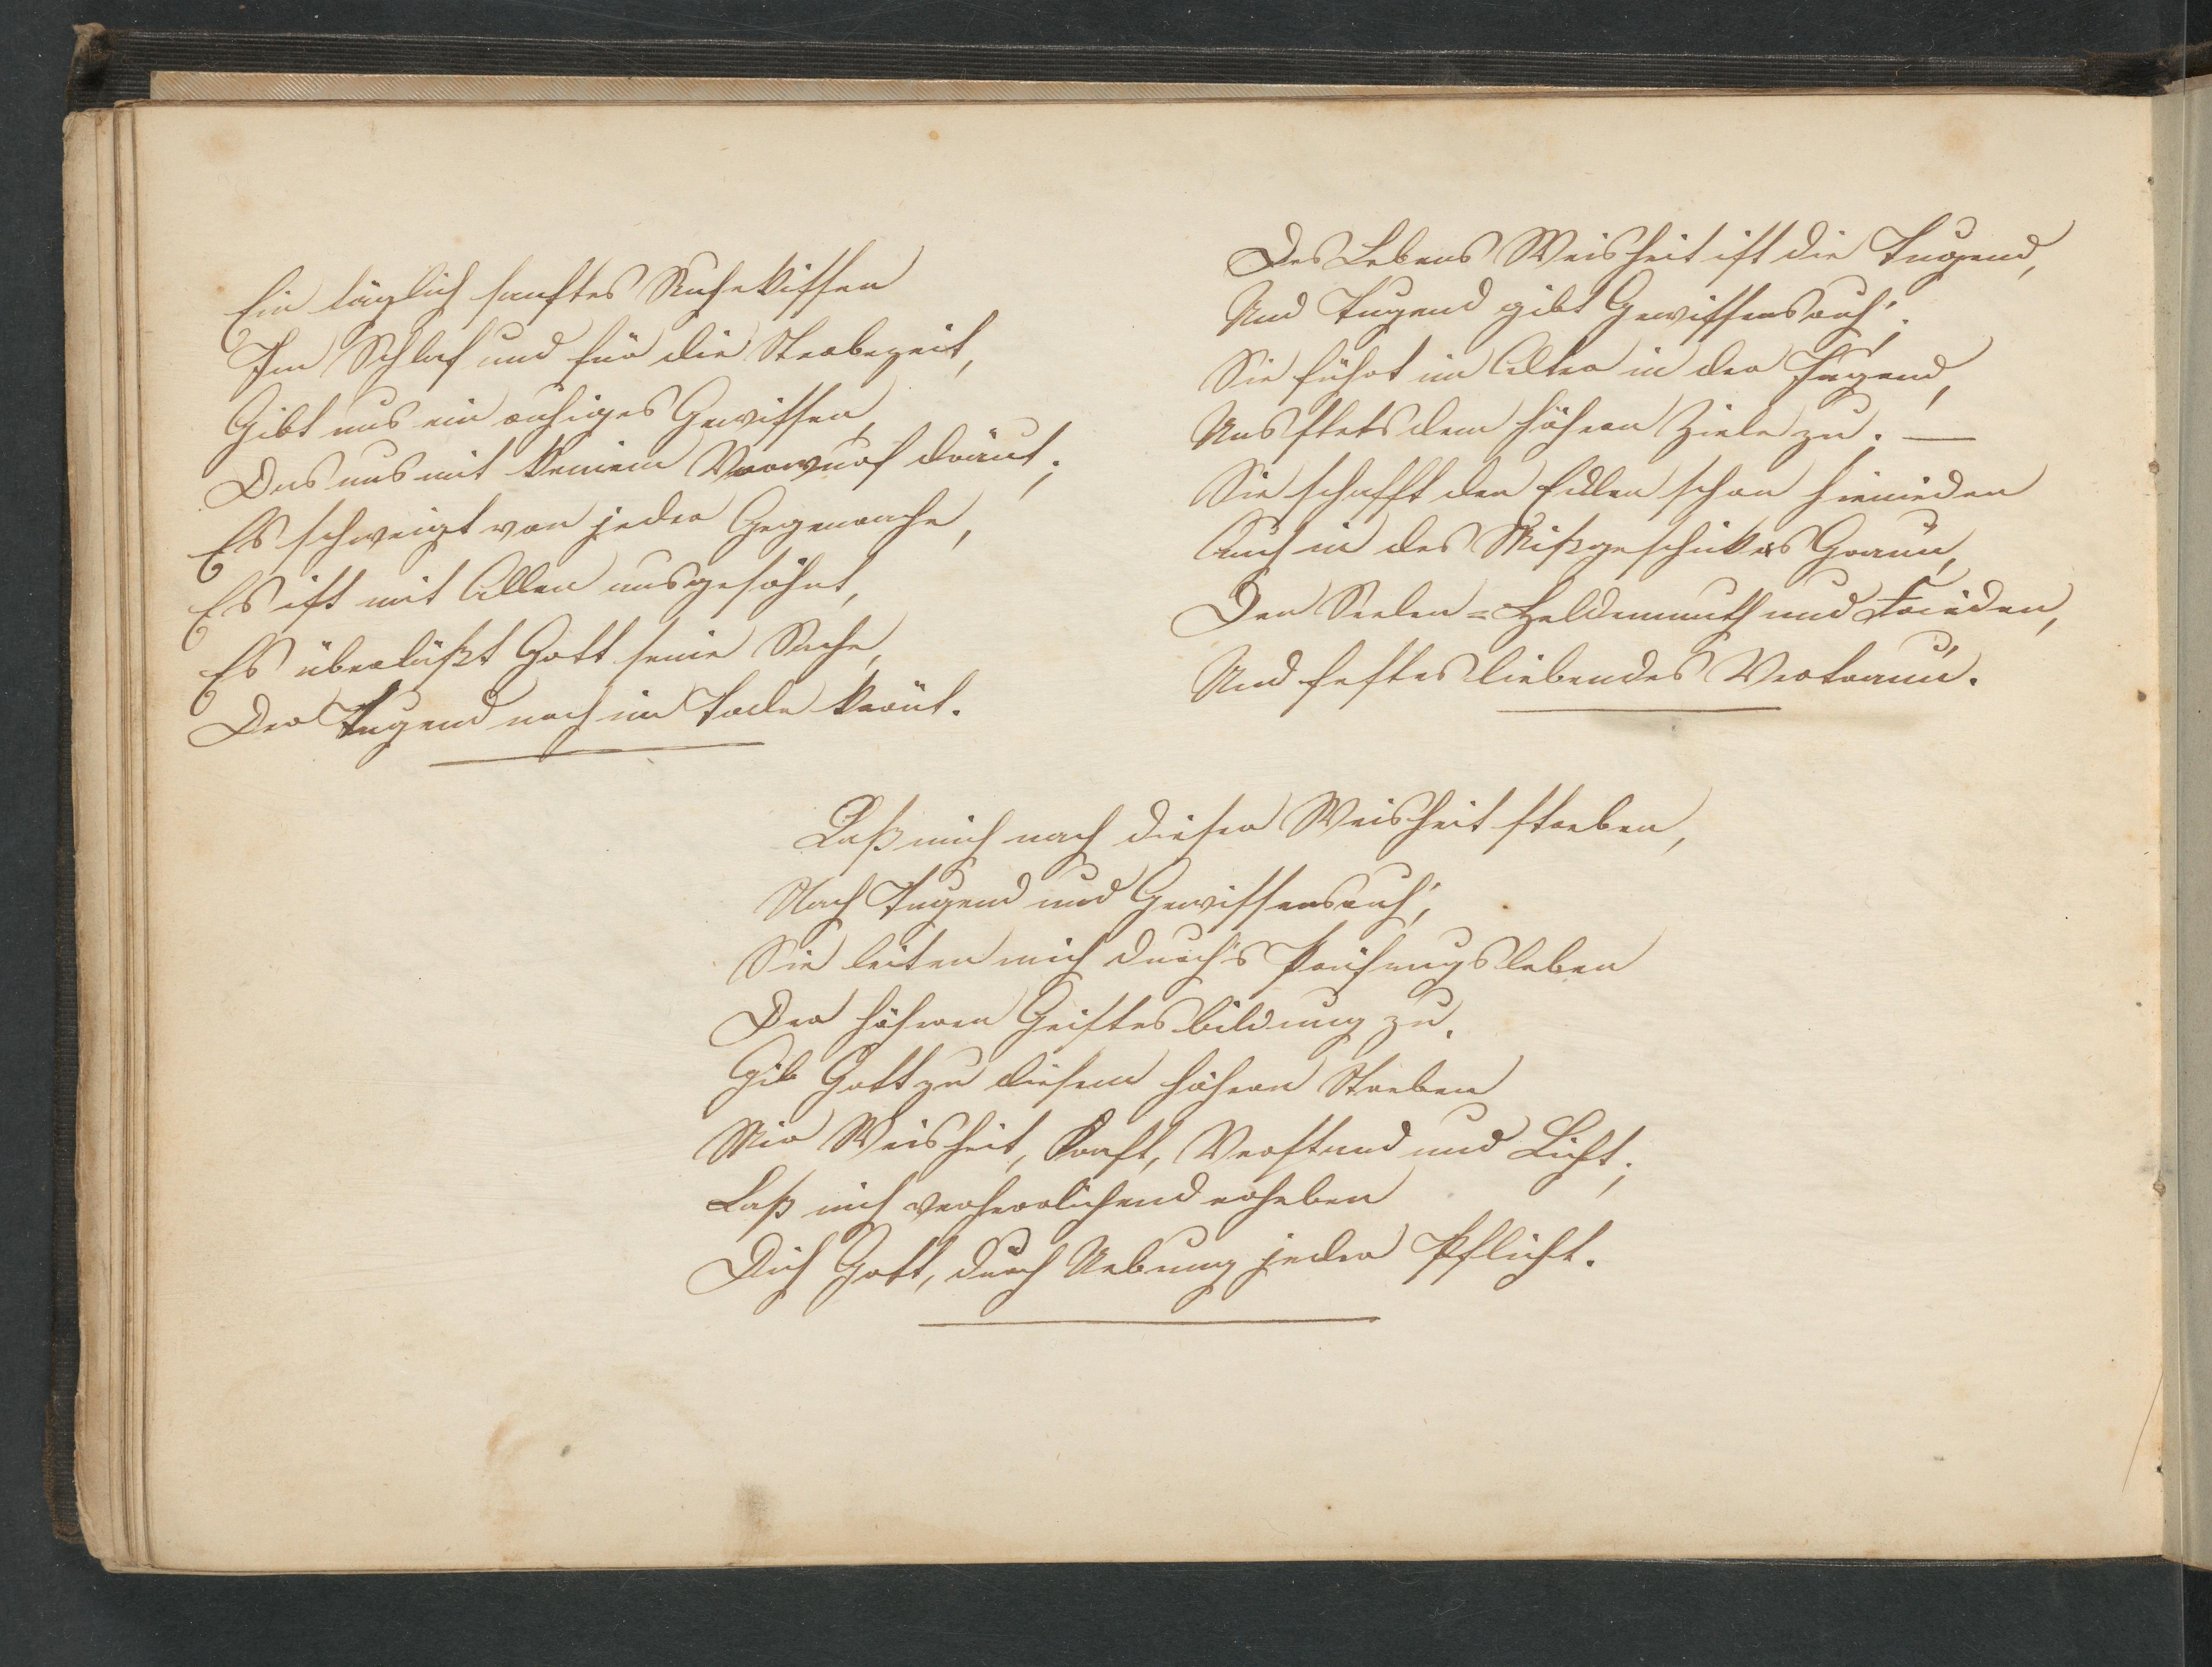 Ein täglich sanftes Ruhekissen
Im Schlaf und für die Sterbezeit,
Gibt uns ein ruhiges Gewissen,
Das uns mit keinem Vorwurf dräut;
Es schweigt von jeder Gegenrache,
Es ist mit Allen ausgesöhnt,
Es überläßt Gott seine Sache,
Der Tugend noch im Tode krönt.
Des Lebens Weisheit ist die Tugend,
Und Tugend gibt Gewissensruh'.
Sie führt im Alter in der Jugend,
Uns stets dem höhern Ziele zu. —
Sie schafft den Edlen schon hienieden
Auch in des Mißgeschickes Grau'n,
Den Seelen-Heldenmuth und Frieden,
Und festes liebendes Vertrau'n.
Laß mich nach dieser Weisheit streben,
Nach Tugend und Gewissensruh',
Sie leiten mich durch's Prüfungsleben
Der höheren Geistesbildung zu.
Gib Gott zu diesem höhern Streben
Mir Weisheit, Kraft, Verstand und Licht;
Laß mich verherrlichend erheben
Dich Gott, durch Uebung jeder Pflicht.